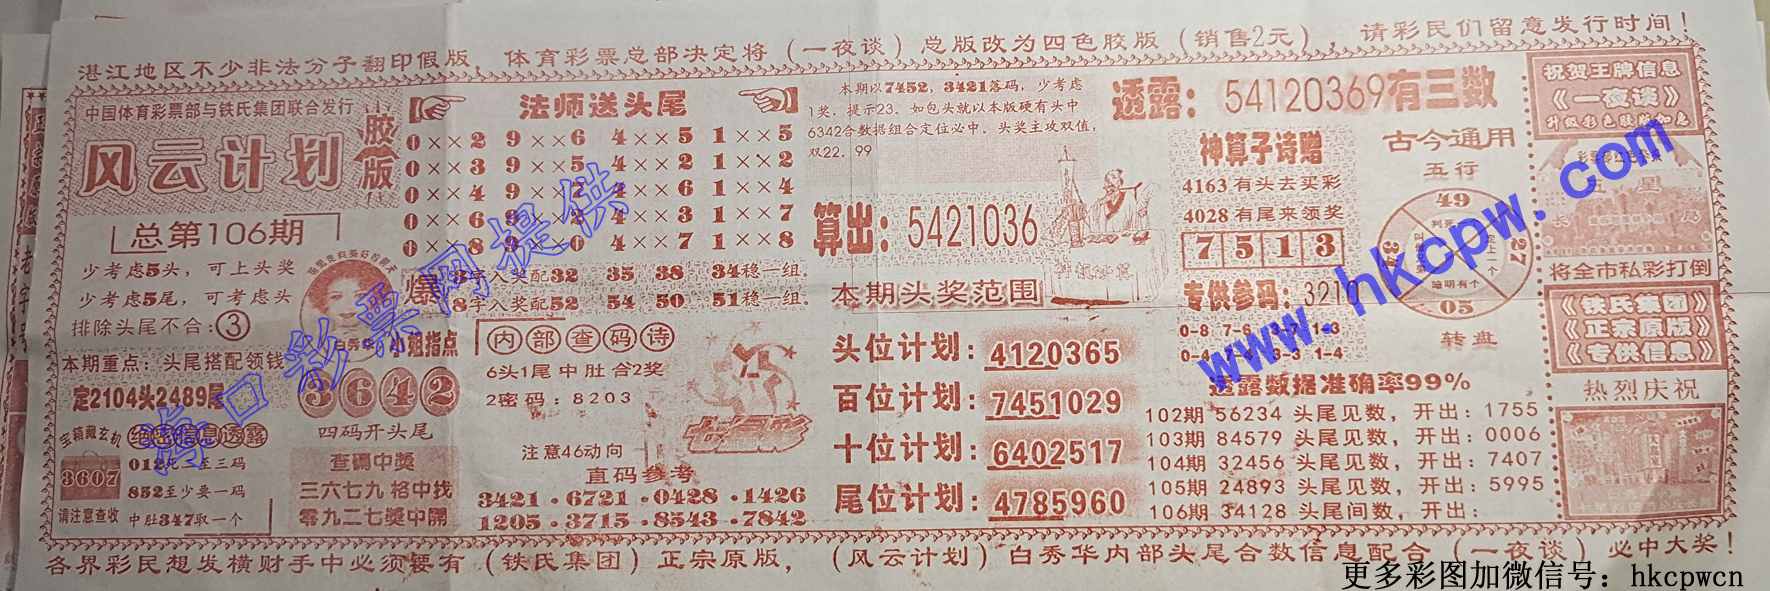 湛江地区不少非法分子翻印假版，体育彩票总部决定将（一夜谈）总版改为四色胶版（销售2元），请彩民们留意发行时间！
中国体育彩票部与铁氏集团联合发行
风云计划
胶版
总第106期
少考虑5头，可上头奖
少考虑5尾，可考虑头
排除头尾不合：③
本期重点：头尾搭配领钱
定2104头2489尾
宝箱藏玄机
绝密信息透露
3607
852至少要一码
请注意查收
中肚347取一个
法师送头尾
0××2 9××6 4××5 1××5
0××3 9××5 4××2 1××2
0××4 9××7 4××6 1××4
4××3 1××7
0××8 9××0 4××7 1××8
爆
3字入奖配32 35 38 34稳一组。
8字入奖配52 54 50 51稳一组。
小姐指点
3642
四码开头尾
查码中奖
三六七九格中找
零九二七奖中开
内部查码诗
6头1尾中肚合2奖
2密码：8203
注意46动向
七星彩
直码参考
3421.6721.0428.1426
1205.3715.8543.7842
本期以7452，3421落码，少考虑
1奖，提示23。如包头就以本版硬有头中
6342合数据组合定位必中。头奖主攻双值，
双22.99
算出：5421036
本期头奖范围
头位计划：4120365
百位计划：7451029
十位计划：6402517
尾位计划：4785960
透露：54120369有三数
神算子诗赠
4163有头去买彩
4028有尾来领奖
7513
专供参码：3210
0-8 7-6 3-7 1-3
古今通用
五行
49
27
05
转盘
透露数据准确率99%
102期 56234 头尾见数，开出：1755
103期 84579 头尾见数，开出：0006
104期 32456 头尾见数，开出：7407
105期 24893 头尾见数，开出：5995
106期 34128 头尾间数，开出：
祝贺王牌信息
《一夜谈》
升级彩色胶版加急
将全市私彩打倒
《铁氏集团》
《正宗原版》
《专供信息》
热烈庆祝
各界彩民想发横财手中必须要有（铁氏集团）正宗原版，（风云计划）白秀华内部头尾合数信息配合（一夜谈）必中大奖！
海口彩票网提供 www.hkcpw.com
更多彩图加微信号：hkcpwcn